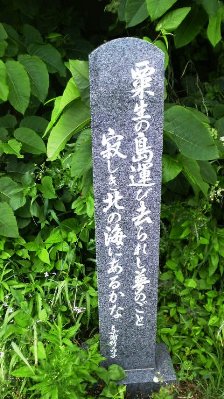 粟生の島運び去られし夢のごと
寂しき北の海にあるかな